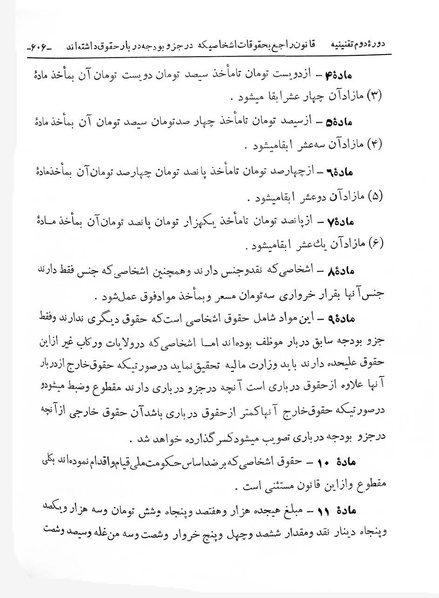 دورهٔ دوم تقنینیه قانون راجع بحقوقات اشخاصیکه در جزو بودجه دربار حقوق داشته‌اند -۶۰۶-
مادهٔ ۴ - از دویست تومان تا مأخذ سیصد تومان دویست تومان آن بمأخذ مادهٔ
(۳) مازاد آن چهار عشر ابقا میشود .
مادهٔ ۵ - از سیصد تومان تا مأخذ چهار صد تومان سیصد تومان آن بمأخذ مادهٔ
(۴) مازاد آن سه عشر ابقا میشود .
مادهٔ ۶ - از چهار صد تومان تا مأخذ پانصد تومان چهار صد تومان آن بمأخذ مادهٔ
(۵) مازاد آن دو عشر ابقا میشود .
مادهٔ ۷ - از پانصد تومان تا مأخذ یکهزار تومان پانصد تومان آن بمأخذ مادهٔ
(۶) مازاد آن یك عشر ابقا میشود .
مادهٔ ۸ - اشخاصی که نقد و جنس دارند و همچنین اشخاصی که جنس فقط دارند
جنس آنها بقرار خرواری سه تومان مسعر و بمأخذ مواد فوق عمل شود .
مادهٔ ۹ - این مواد شامل حقوق اشخاصی است که حقوق دیگری ندارند و فقط
جزو بودجه سابق دربار موظف بوده‌اند اما اشخاصی که در ولایات و رکاب غیر از این
حقوق علیحده دارند باید وزارت مالیه تحقیق نماید در صورتیکه حقوق خارج از دربار
آنها علاوه از حقوق درباری است آنچه در جزو درباری دارند مقطوع و ضبط میشود و
در صورتیکه حقوق خارج آنها کمتر از حقوق درباری باشد آن حقوق خارجی از آنچه
در جزو بودجه درباری تصویب میشود کسر گذارده خواهد شد .
مادهٔ ۱۰ - حقوق اشخاصی که بر ضد اساس حکومت ملی قیام و اقدام نموده‌اند بکلی
مقطوع و از این قانون مستثنی است .
مادهٔ ۱۱ - مبلغ هیجده هزار و هفتصد و پنجاه و شش تومان و سه هزار و یکصد
و پنجاه دینار نقد و مقدار ششصد و چهل و پنج خروار و شصت و سه من غله و سیصد و شصت